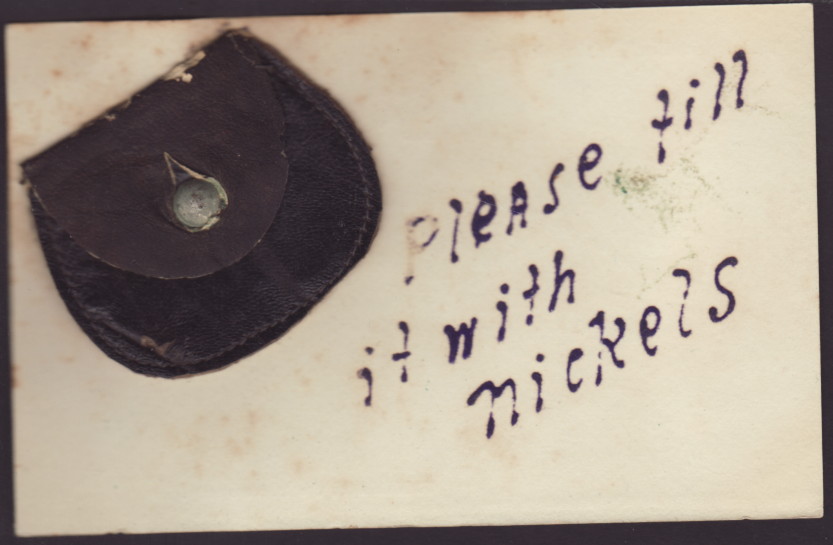 please fill
it with
nickels